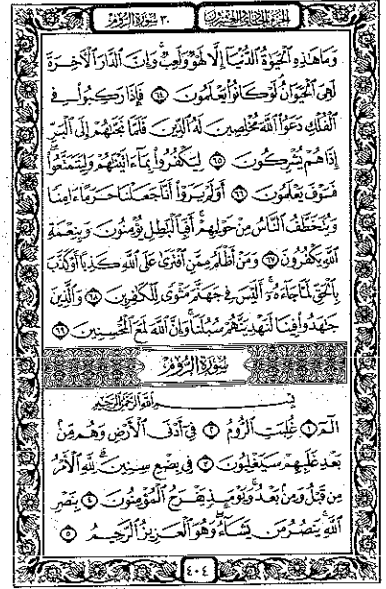 الجزء الحادي والعشرون
٣٠ سورة الروم
وَمَا هَٰذِهِ الْحَيَوٰةُ الدُّنْيَا إِلَّا لَهْوٌ وَلَعِبٌ وَإِنَّ الدَّارَ الْآخِرَةَ
لَهِيَ الْحَيَوَانُ لَوْ كَانُوا يَعْلَمُونَ ٦٤ فَإِذَا رَكِبُوا فِي
الْفُلْكِ دَعَوُا اللَّهَ مُخْلِصِينَ لَهُ الدِّينَ فَلَمَّا نَجَّىٰهُمْ إِلَى الْبَرِّ
إِذَا هُمْ يُشْرِكُونَ ٦٥ لِيَكْفُرُوا بِمَا آتَيْنَٰهُمْ وَلِيَتَمَتَّعُوا
فَسَوْفَ يَعْلَمُونَ ٦٦ أَوَلَمْ يَرَوْا أَنَّا جَعَلْنَا حَرَمًا آمِنًا
وَيُتَخَطَّفُ النَّاسُ مِنْ حَوْلِهِمْ أَفَبِالْبَٰطِلِ يُؤْمِنُونَ وَبِنِعْمَةِ
اللَّهِ يَكْفُرُونَ ٦٧ وَمَنْ أَظْلَمُ مِمَّنِ افْتَرَىٰ عَلَى اللَّهِ كَذِبًا أَوْ كَذَّبَ
بِالْحَقِّ لَمَّا جَاءَهُ أَلَيْسَ فِي جَهَنَّمَ مَثْوًى لِلْكَٰفِرِينَ ٦٨ وَالَّذِينَ
جَٰهَدُوا فِينَا لَنَهْدِيَنَّهُمْ سُبُلَنَا وَإِنَّ اللَّهَ لَمَعَ الْمُحْسِنِينَ ٦٩
سُورَةُ الرُّومِ
بِسْمِ اللَّهِ الرَّحْمَٰنِ الرَّحِيمِ
الٓمٓ ١ غُلِبَتِ الرُّومُ ٢ فِي أَدْنَى الْأَرْضِ وَهُمْ مِنْ
بَعْدِ غَلَبِهِمْ سَيَغْلِبُونَ ٣ فِي بِضْعِ سِنِينَ لِلَّهِ الْأَمْرُ
مِنْ قَبْلُ وَمِنْ بَعْدُ وَيَوْمَئِذٍ يَفْرَحُ الْمُؤْمِنُونَ ٤ بِنَصْرِ
اللَّهِ يَنْصُرُ مَنْ يَشَاءُ وَهُوَ الْعَزِيزُ الرَّحِيمُ ٥
٤٠٤